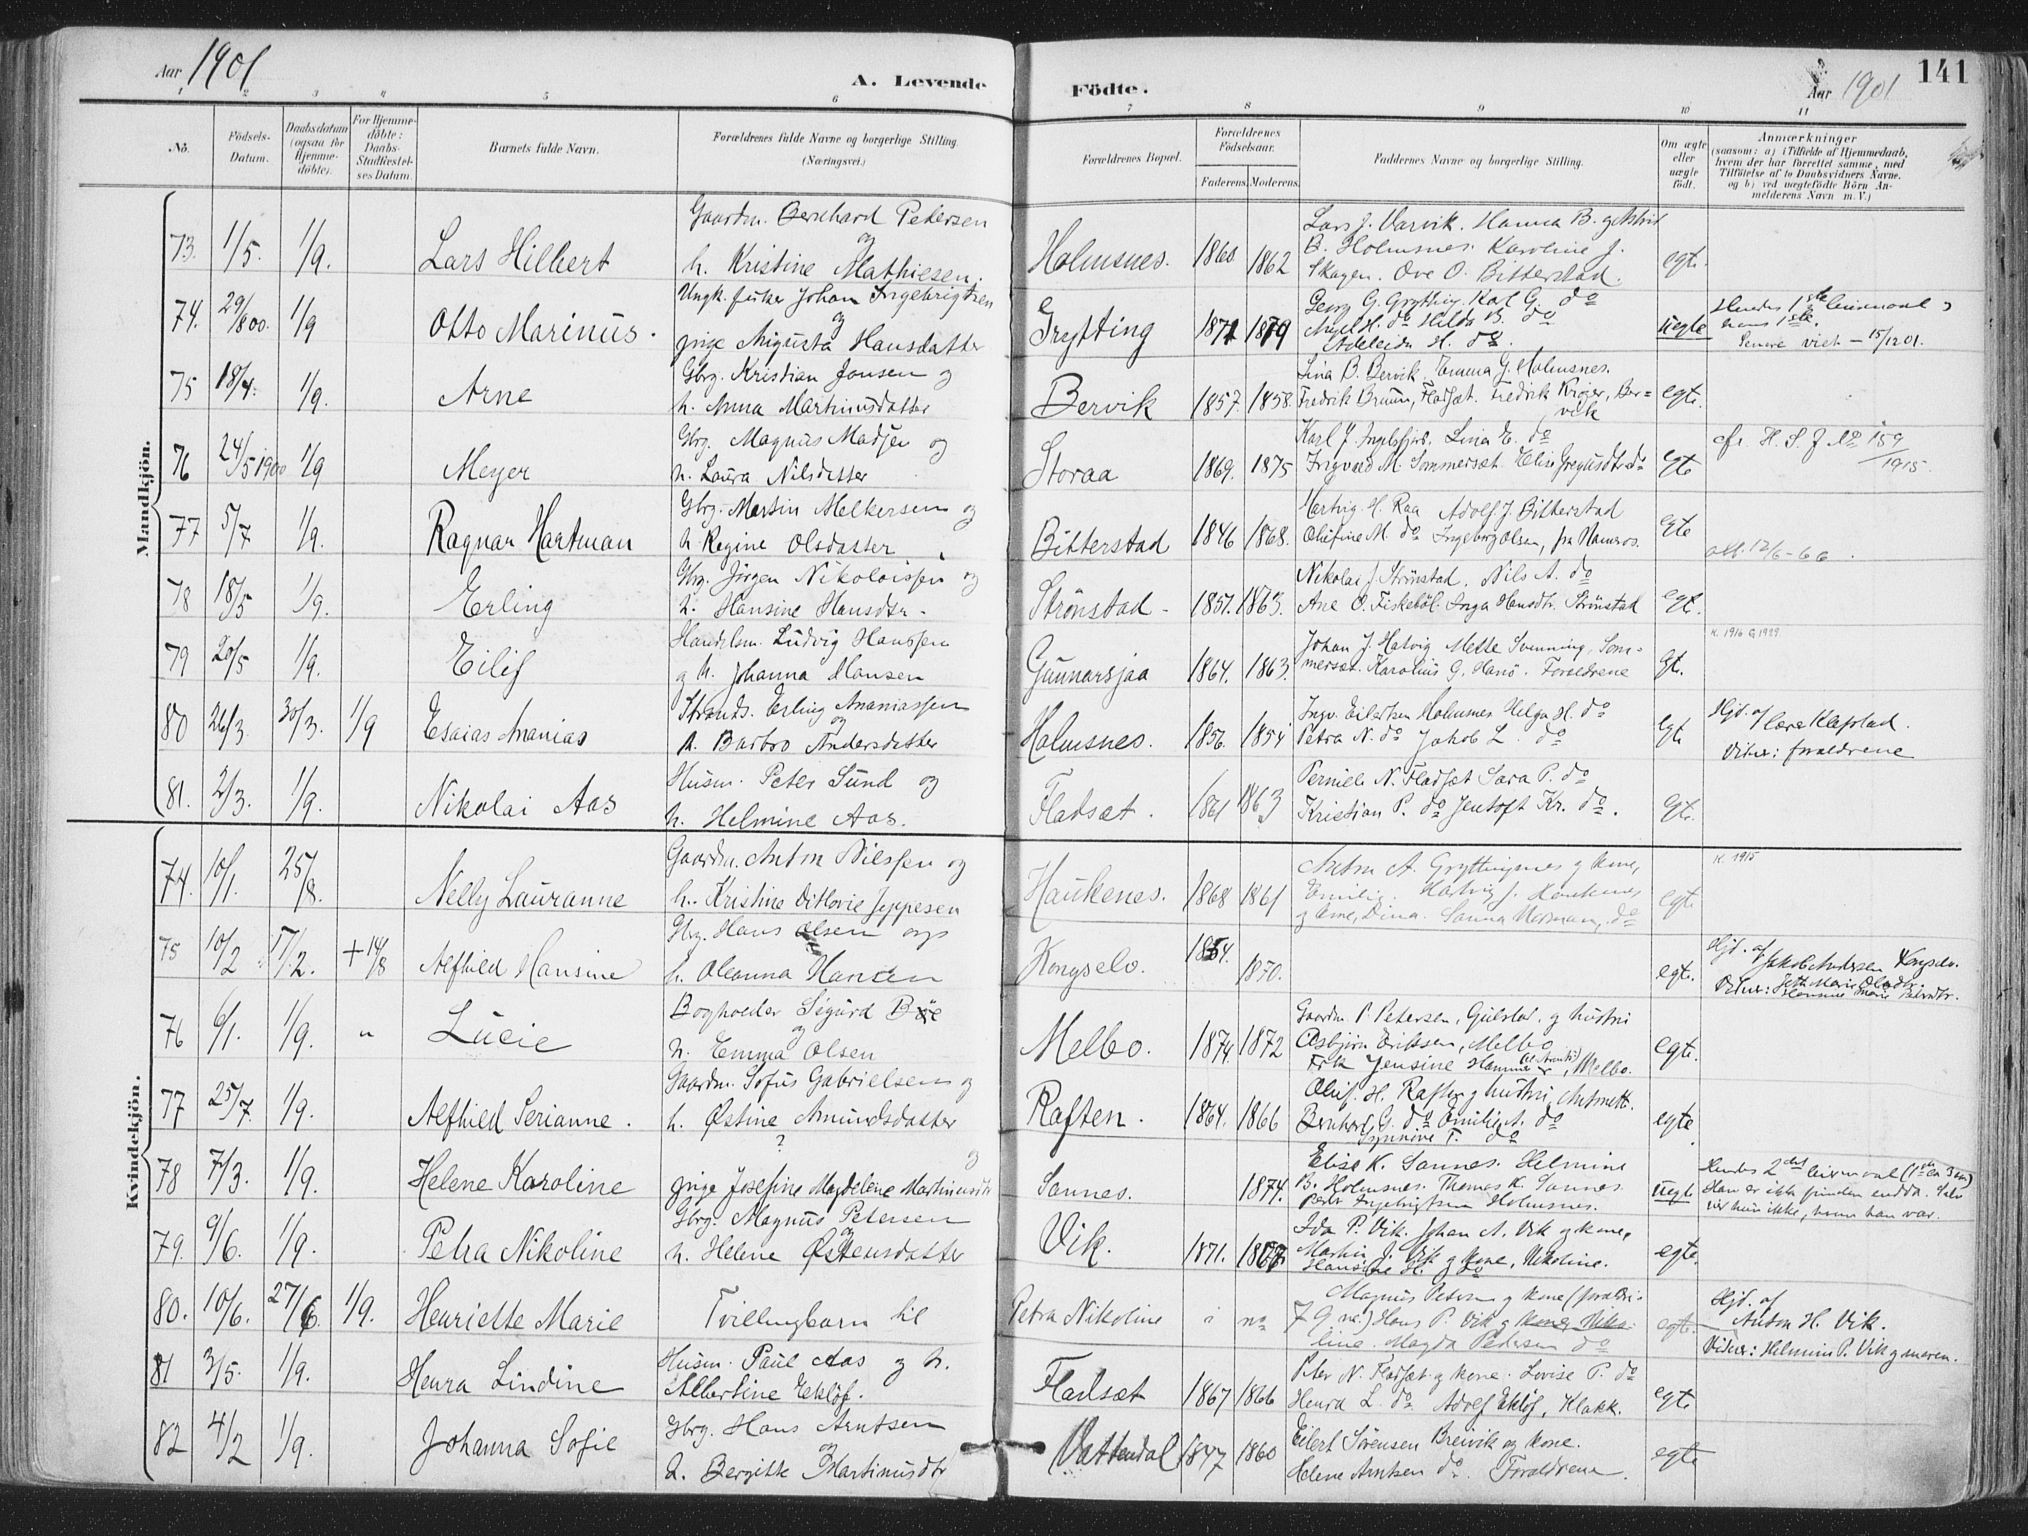 Aar 1901
A. Levende Födte.
Aar 1901
141
1 2 3 4 5 6 7 8 9 10 11
No.
Födsels-Datum.
Daabsdatum (ogsaa for Hjemme-döbte).
For Hjemme-döbte: Daabs-Stadfæstel-ses Datum.
Barnets fulde Navn.
Forældrenes fulde Navne og borgerlige Stilling (Næringsvei.)
Forældrenes Bopæl.
Forældrenes Födselsaar.
Faderens. Moderens.
Faddernes Navne og borgerlige Stilling.
Om ægte eller uægte födt.
Anmærkninger
(saasom: a) i Tilfælde af Hjemmedaab, hvem der har forrettet samme, med Tilföielse af to Daabsvidners Navne. og b) ved uægtefödte Börn An-melderens Navn m. V.)
Mandkjön.
73. 1/5. 1/9. Lars Hilbert Gaardm. Bernhard Petersen og h. Kristine Mathiesen. Holmsnes. 1860 1862 Lars J. Varvik. Hanna B. B. Holmsnes. Karoline J. Skagen. Ove O. Bitterstad. egte.
74. 29/8 00. 1/9 Otto Marinus. Ungk. fisker Johan Ingebrigtsen og pige Augusta Hansdatter Grytting 1871 1879 Georg G. Grytting. Karl G. do H. do Hilda B. do Adeleide H. do uegte Hendes 1ste leiermaal, hans 1ste. Senere viet - 15/12 01.
75 18/4. 1/9. Arne Gbrg. Kristian Jonsen og h. Anna Martinusdatter Bervik 1857. 1858. Lina B. Bervik. Emma G. Holmsnes. Fredrik Bruun, Fladsæt. Fredrik Krøger, Ber=vik egte.
76 24/5 1900 1/9 Meyer Gbrg. Magnus Madsen og h. Laura Nilsdatter Storaa 1869. 1875 Karl J. Ingelsfjord. Lina E. do Ingvard M. Sommersæt. do egte cfr. H. S. J No 159/1915.
77 5/7 1/9. Ragnar Hartman Gbrg. Martin Melkersen og h. Regine Olsdatter Bitterstad 1846 1868. Hartvig H. Raa Adolf J. Bitterstad Olufine M. do Ingeborg Olsen, fra egte att. 12/6-66.
78 18/5 1/9. Erling Gbrg. Jörgen Nikolaissen og h. Hansine Hansdtr. Strönstad - 1851. 1863. Nikolai J. Strönstad. Nils A. do Ane O. Fiskeböl. Inga Hansdtr. Strönstad egt.
79 20/5 1/9. Eilif Handelsm. Ludvig Hanssen og h. Johanna Hansen Gunnarsjaa 1864. 1863. Johan J. Hatvig Mette Svenning, Som=mersæt. Karolius G. Hanö. Forældrene egt. K. 1916 G 1929
80 26/3 30/3. 1/9 Esaias Ananias Strands. Erling Ananiassen og h. Barbro Andersdatter Holmsnes. 1856. 1854 Ingv. Eilertsen Holmsnes Helga H. do Petra N. do Jakob L. do egt Hjd. af Lars Klafstad. Vitner: forældrene
81. 2/3. 1/9. Nikolai Aas Husm. Peter Sund og h. Helmine Aas. Fladsæt. 1861 1863 Pernille N. Fladsæt Sara P. do Kristian P. do Jentoft Kr. do. egt.
Kvindekjön.
74. 10/1. 25/8. Nelly Lauranne Gaardm. Anton Nilssen og h. Kristine Ditlovie Jeppesen Haukenes. 1868 1861 Anton A. Gryttingnes og kone, Emilie. Hatvig J. Haukenes og kone, Dina. Sanna Normann, do egt. K. 1915
75 10/2 17/2. + 14/8 Alfhild Hansine Gbrg. Hans Olsen og h. Oleanna Hansen Kongselv. 1854. 1870. egte. Hjd. af Jakob Andersen Kongselv. Vitner: Marie Olsdtr. Hansine Marie
76 6/1. 1/9. " Lucie Bogholder Sigurd Böe og h. Emma Olsen Melbo. 1874. 1872 Gaardm. P. Petersen, Gulstad. og hustru Asbjörn Eriksen, Melbo Frk Jensine Hammer, Melbo. egte.
77 25/7. 1/9. Alfhild Serianne. Gaardm. Sofus Gabrielsen og h. Østine Amundsdatter Raften. 1864. 1866 Oluf. H. Raften og hustru, Antonette. Bernhard G. do Emilie A. do Synnöve T. do egte.
78 7/3. 1/9. Helene Karoline ? og pige Josefine Magdelene Martinusdtr Sannes. 1874. Elise K. Sannes. Helmine B. Holmsnes. Thomas K. Sannes. Peder Ingebrigtsen Holmsnes. uegt Hendes 2det leiermaal (1ste ca 3 mn) Han er ikke funden endda. ikke, hvem han var.
79. 9/6. 1/9. Petra Nikoline Gbrg. Magnus Petersen og h. Helene Østensdatter Vik. 1871. 1867 Ida P. Vik. Johan A. Vik og kone, Martin J. Vik og kone, Nikoline. Hansine H. do egte.
80. 10/6. 27/6. 1/9. Henriette Marie Tvillingbarn til Petra Nikoline i no 79 Magnus Peters. og kone (foræl-dre) Hans P. Vik og kone, Niko-line. Magda Petersen do egte. Hjd. af Anton H. Vik. Vitner: Helmine P. Vik og moren.
81 3/5. 1/9. Henra Lindine Husm. Paul Aas og h. Albertine Eklöf. Fladsæt 1867 1866 Peter N. Fladsæt og kone. Lovise P. do Henra L. do. Adolf Eklöf, Klakk. egte
82 4/2 1/9. Johanna Sofie Gbrg. Hans Arntsen og h. Bergitte Martinusdtr Vattendal 1847 1860 Eilert Sörensen Breivik og kone. Helene Arntsen do. Forældrene. egte